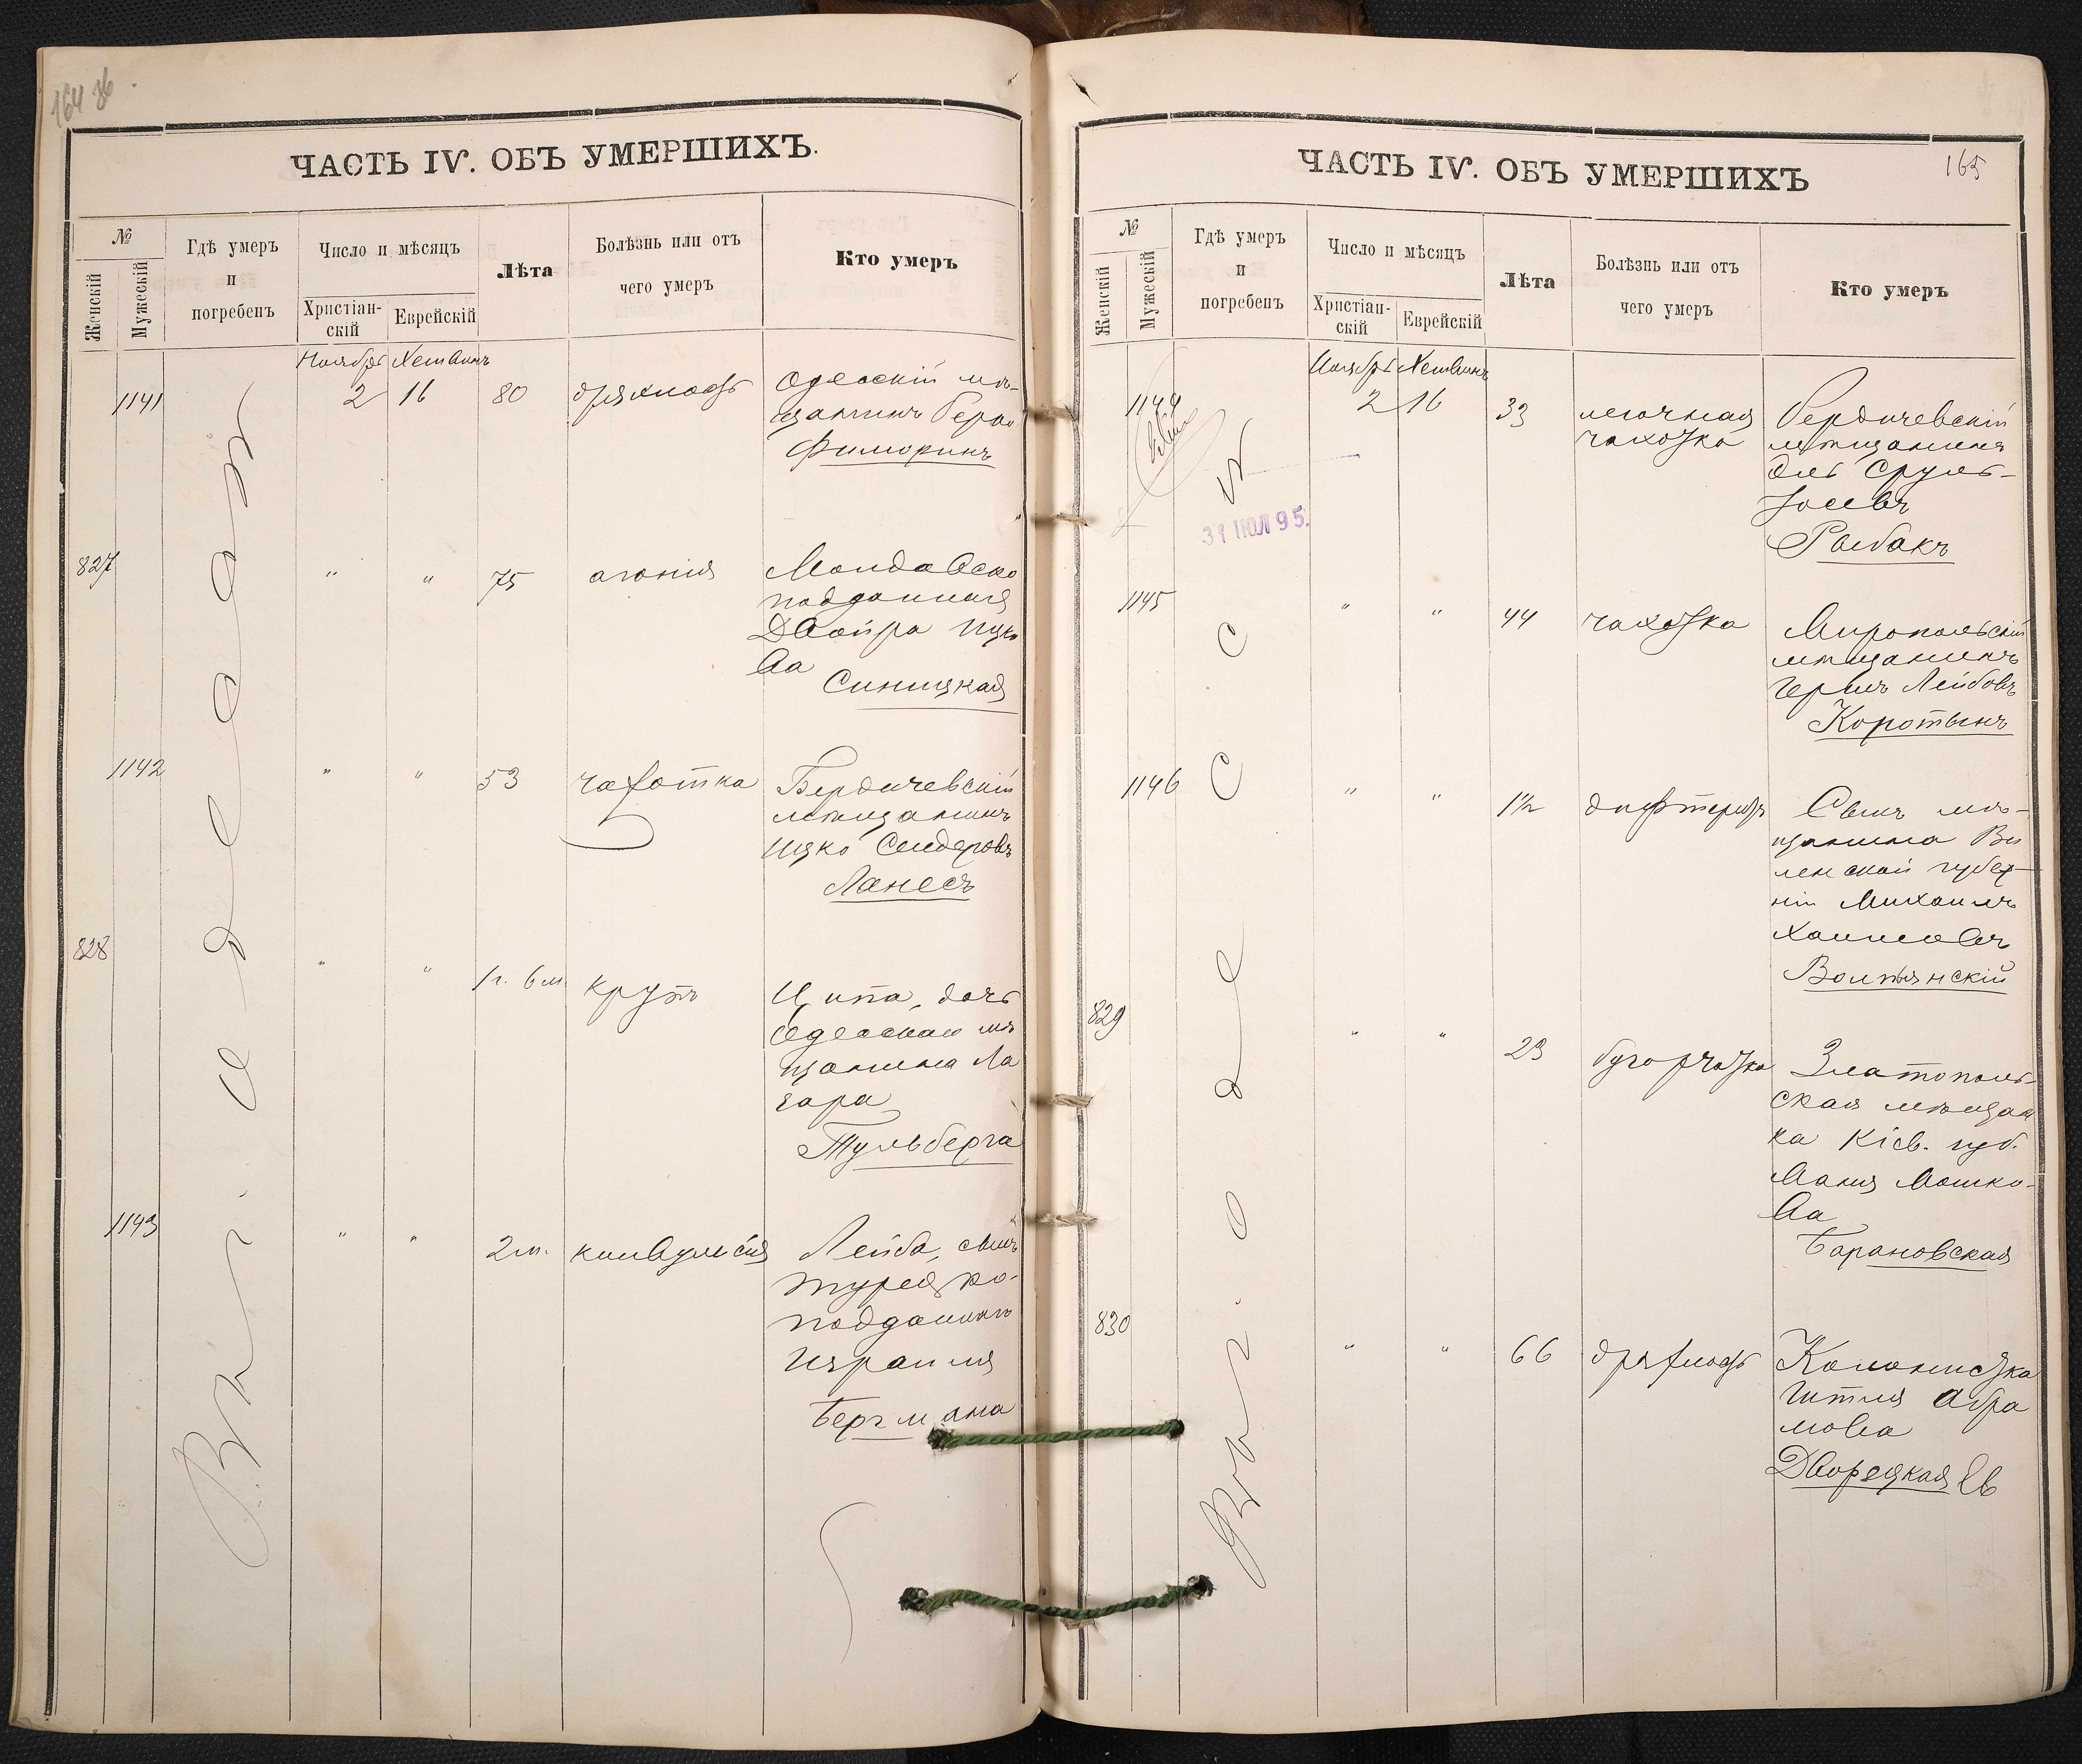 164 об.
ЧАСТЬ IV. ОБЪ УМЕРШИХЪ.
№
Женскій
Мужескій
Гдѣ умеръ
и
погребенъ
Число и мѣсяцъ
Христіан-
скій
Еврейскій
Лѣта
Болѣзнь или отъ
чего умеръ
Кто умеръ
Ноябрь Хешванъ
1141 2 16 80 дряхлость Одесскій мѣ-
щанинъ Берко
Фиморинъ
827 " " 75 агонія Молдавско
подданная
Двойра Ицко
ва
Синицкая
1142 " " 53 чахотка Бердичевскій
мѣщанинъ
Ицко Сендеровъ
Ланесъ
828 " " 1 г. 6 м. крупъ Ципа, дочь
Одесскаго мѣ
щанина Ла
заря
Тульберга
1143 " " 2 м. конвульсія Лейба, сынъ
турецко-
подданнаго
Израиля
Бергмана
Въ г. Одессѣ
ЧАСТЬ IV. ОБЪ УМЕРШИХЪ
165
№
Женскій
Мужескій
Гдѣ умеръ
и
погребенъ
Число и мѣсяцъ
Христіан-
скій
Еврейскій
Лѣта
Болѣзнь или отъ
чего умеръ
Кто умеръ
Ноябрь Хешванъ
1144 2 16 33 легочная Бердичевскій
чахотка мѣщанинъ
Сруль-
Іосевъ
Рыбакъ
31 ІЮЛ 95.
1145 " " 44 чахотка Миропольскій
мѣщанинъ
Гершъ Лейбовъ
Коротынъ
1146 " " 1½ дифтеритъ Сынъ мѣ-
щанина Ви
ленской губер-
ніи Михаилъ
Хаимовъ
Волпянскій
829 " " 23 бугорчатка Златополь-
ская мѣщан
ка Кіев. губ.
Маня Мошко-
ва
Барановская
830 " " 66 дряхлость Колонистка
Гитля Абра
мова
Дворецкая
Въ г. Одессѣ